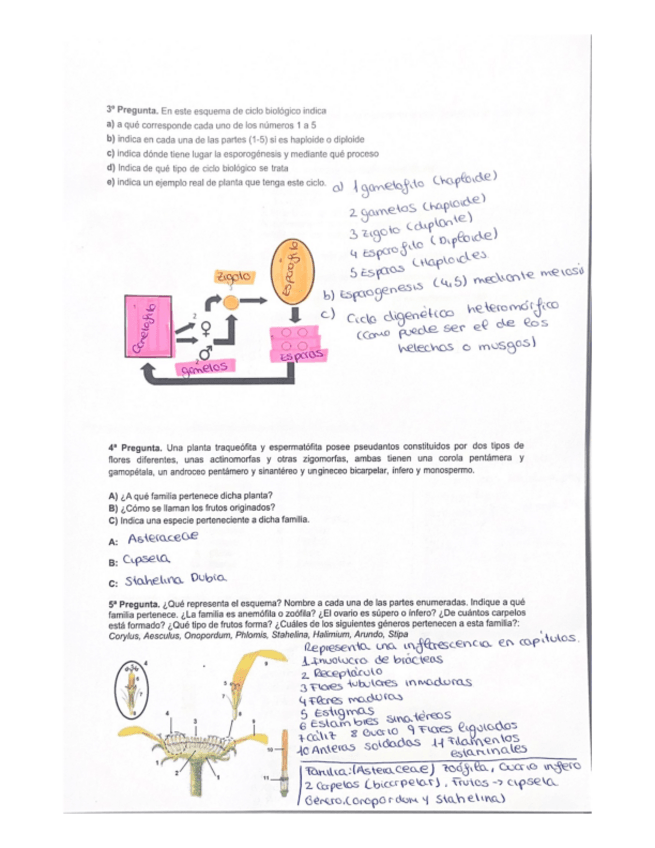 3ª Pregunta. En este esquema de ciclo biológico indica
a) a qué corresponde cada uno de los números 1 a 5
b) indica en cada una de las partes (1-5) si es haploide o diploide
c) indica dónde tiene lugar la esporogénesis y mediante qué proceso
d) Indica de qué tipo de ciclo biológico se trata
e) indica un ejemplo real de planta que tenga este ciclo.
a) 1 gametofito (haploide)
2 gametos (haploide)
3 zigoto (diplonte)
4 Esporofito (Diploide)
5 Esporas (Haploides
b) Esporogenesis (4,5) mediante meiosi
c) Ciclo digenético heteromórfico
(como puede ser el de los
helechos o musgos)
Zigoto
Esporofito
Gametofito
2
♀
♂
gametos
Esporas
4ª Pregunta. Una planta traqueófita y espermatófita posee pseudantos constituidos por dos tipos de
flores diferentes, unas actinomorfas y otras zigomorfas, ambas tienen una corola pentámera y
gamopétala, un androceo pentámero y sinantéreo y un gineceo bicarpelar, ínfero y monospermo.
A) ¿A qué familia pertenece dicha planta?
B) ¿Cómo se llaman los frutos originados?
C) Indica una especie perteneciente a dicha familia.
A: Asteraceae
B: Cipsela
C: Stahelina Dubia
5ª Pregunta. ¿Qué representa el esquema? Nombre a cada una de las partes enumeradas. Indique a qué
familia pertenece. ¿La familia es anemófila o zoófila? ¿El ovario es súpero o ínfero? ¿De cuántos carpelos
está formado? ¿Qué tipo de frutos forma? ¿Cuáles de los siguientes géneros pertenecen a esta familia?:
Corylus, Aesculus, Onopordum, Phlomis, Stahelina, Halimium, Arundo, Stipa
Representa una inflorescencia en capítulos.
1 Involucro de brácteas
2 Receptáculo
3 Flores tubulares inmaduras
4 Flores maduras
5 Estigmas
6 Estambres sinatéreos
7 cáliz 8 Ovario 9 Flores liguladas
10 Anteras soldadas 11 Filamentos
estaminales
Familia: (Asteraceae) zoófila, Ovario infero
2 Carpelos (bicarpelar). Frutos -> cipsela
Género. (onopordum y Stahelina)